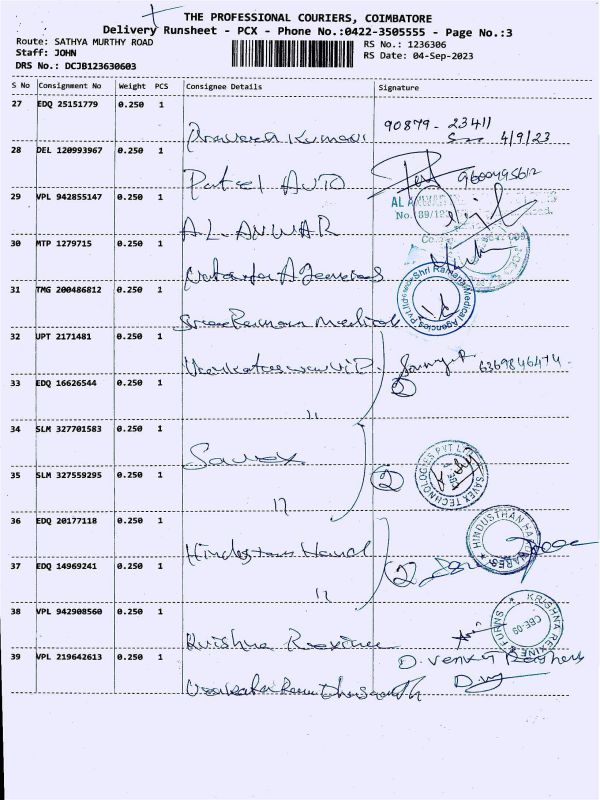 THE PROFESSIONAL COURIERS, COIMBATORE
Delivery Runsheet - PCX - Phone No.:0422-3505555 - Page No.:3
Route: SATHYA MURTHY ROAD
RS No.: 1236306
Staff: JOHN
RS Date: 04-Sep-2023
DRS No.: DCJB123630603
S No Consignment No Weight PCS Consignee Details Signature
27 EDQ 25151779 0.250 1
90879 - 23411
4/9/23
28 DEL 120993967 0.250 1
Patel AUTO
9600495612
29 VPL 942855147 0.250 1
AL-ANWAR
AL ANWAR
No.
30 MTP 1279715 0.250 1
31 TMG 200486812 0.250 1
Medical
Shri Ramana Medical Agencies Pvt.Ltd
32 UPT 2171481 0.250 1
6369846474
33 EDQ 16626544 0.250 1
2
"
34 SLM 327701583 0.250 1
Savex
35 SLM 327559295 0.250 1
2
SAVEX TECHNOLOGIES PVT LTD
"
36 EDQ 20177118 0.250 1
Hindustan Hard
HINDUSTHAN HARDWARES
37 EDQ 14969241 0.250 1
2
"
38 VPL 942908560 0.250 1
Krishna Rexine
KRISHNA REXINE FURNS
CBE-09
39 VPL 219642613 0.250 1
D. Venkat